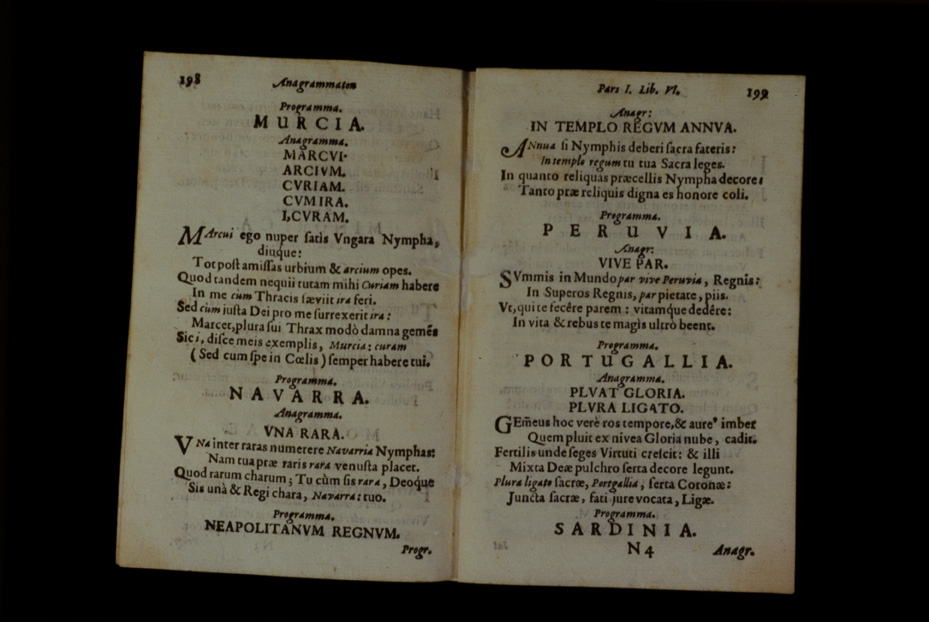 198
Anagrammaton
Programma.
MURCIA.
Anagramma.
MARCVI.
ARCIVM.
CVRIAM.
CVM IRA.
I, CVRAM.
MArcui ego nuper satis Vngara Nympha,
diuque:
Tot post amissas urbium & arcium opes.
Quod tandem nequii tutam mihi Curiam habere
In me cum Thracis sæviit ira feri.
Sed cum iusta Dei pro me surrexerit ira:
Marcet, plura sui Thrax modò damna gemẽs
Sic i, disce meis exemplis, Murcia: curam
(Sed cum spe in Cœlis) semper habere tui.
Programma.
NAVARRA.
Anagramma.
VNA RARA.
VNa inter raras numerere Navarria Nymphas:
Nam tua præ raris rara venusta placet.
Quod rarum charum; Tu cùm sis rara, Deoque
Sis unà & Regi chara, Navarra: tuo.
Programma.
NEAPOLITANVM REGNVM.
Progr.
Pars I. Lib. VI.
199
Anagr:
IN TEMPLO REGVM ANNVA.
ANnua si Nymphis deberi sacra fateris:
In templo regum tu tua Sacra leges.
In quanto reliquas præcellis Nympha decore:
Tanto præ reliquis digna es honore coli.
Programma.
PERUVIA.
Anagr:
VIVE PAR.
SVmmis in Mundo par vive Peruvia, Regnis:
In Superos Regnis, par pietate, piis.
Vt, qui te fecêre parem: vitamque dedêre:
In vita & rebus te magis ultrò beent.
Programma.
PORTUGALLIA.
Anagramma.
PLVAT GLORIA.
PLVRA LIGATO.
GEm̃eus hoc verè ros tempore, & aure⁹ imber
Quem pluit ex nivea Gloria nube, cadit.
Fertilis unde seges Virtuti crescit: & illi
Mixta Deæ pulchro serta decore legunt.
Plura ligato sacræ, Portgallia, serta Coronæ:
Juncta sacræ, fati jure vocata, Ligæ.
Programma.
SARDINIA.
N 4
Anagr.